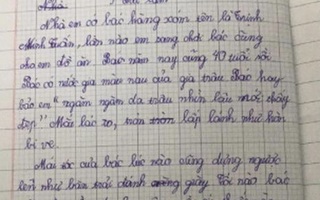 Nhà
Nhà em có bác hàng xóm tên là Trịnh
Minh Tuấn, lần nào em sang chơi bác cũng
cho em đồ ăn. Bác năm nay cũng 40 tuổi rồi.
Bác có nước da màu nâu của gia trâu Bác hay
bảo em "ngăm ngăm da trâu nhìn lâu mới thấy
đẹp" Mái bác to, trán lấp lánh như hòn
bi ve.
Mái tóc của bác lúc nào cũng dựng ngược
lên như bàn chải đánh giầy Tối nào bác